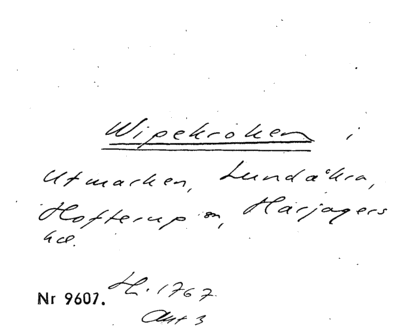 Wipekroken i
Utmarken, Lundåkra,
Hofterup sn, Harjagers
hd.
Nr 9607. H. 1767.
Akt 3